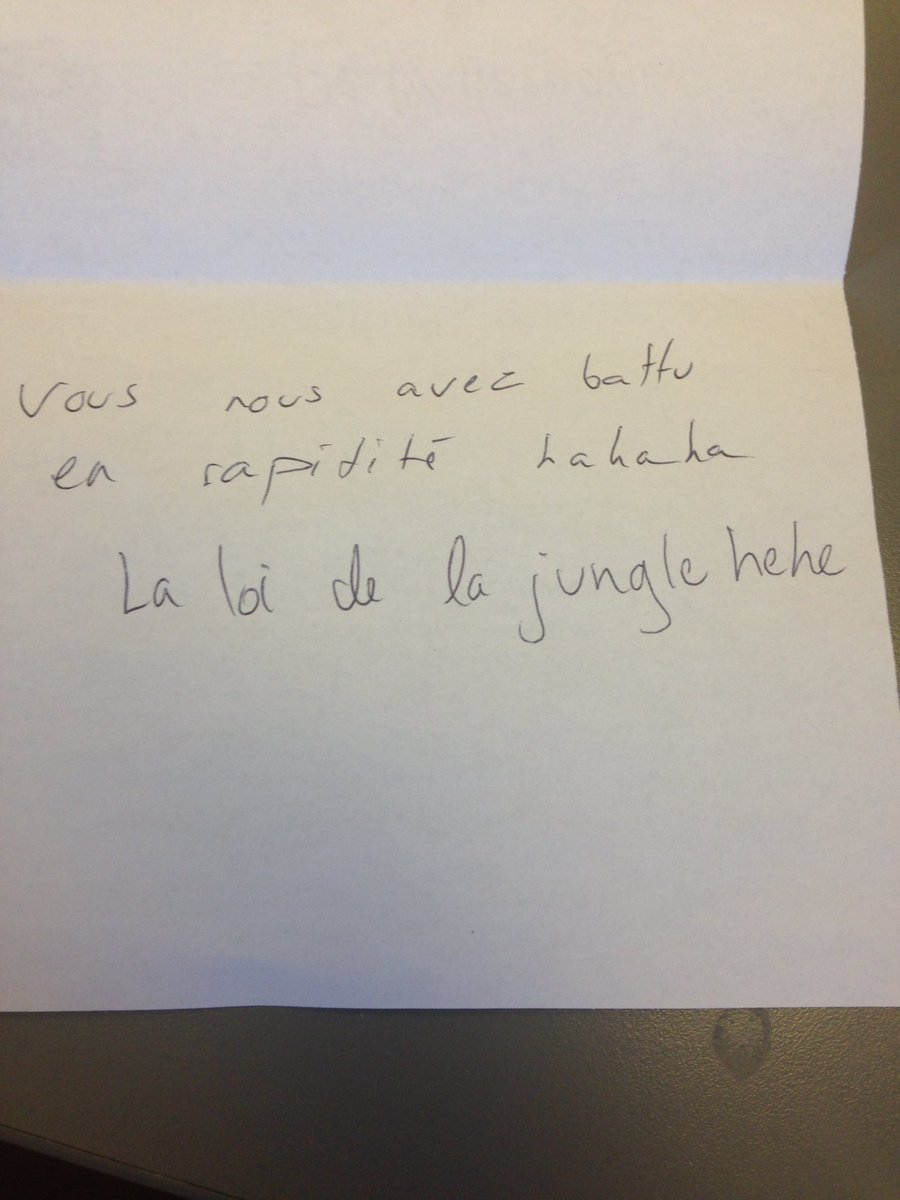 Vous nous avez battu
en rapidité hahaha
La loi de la jungle hehe